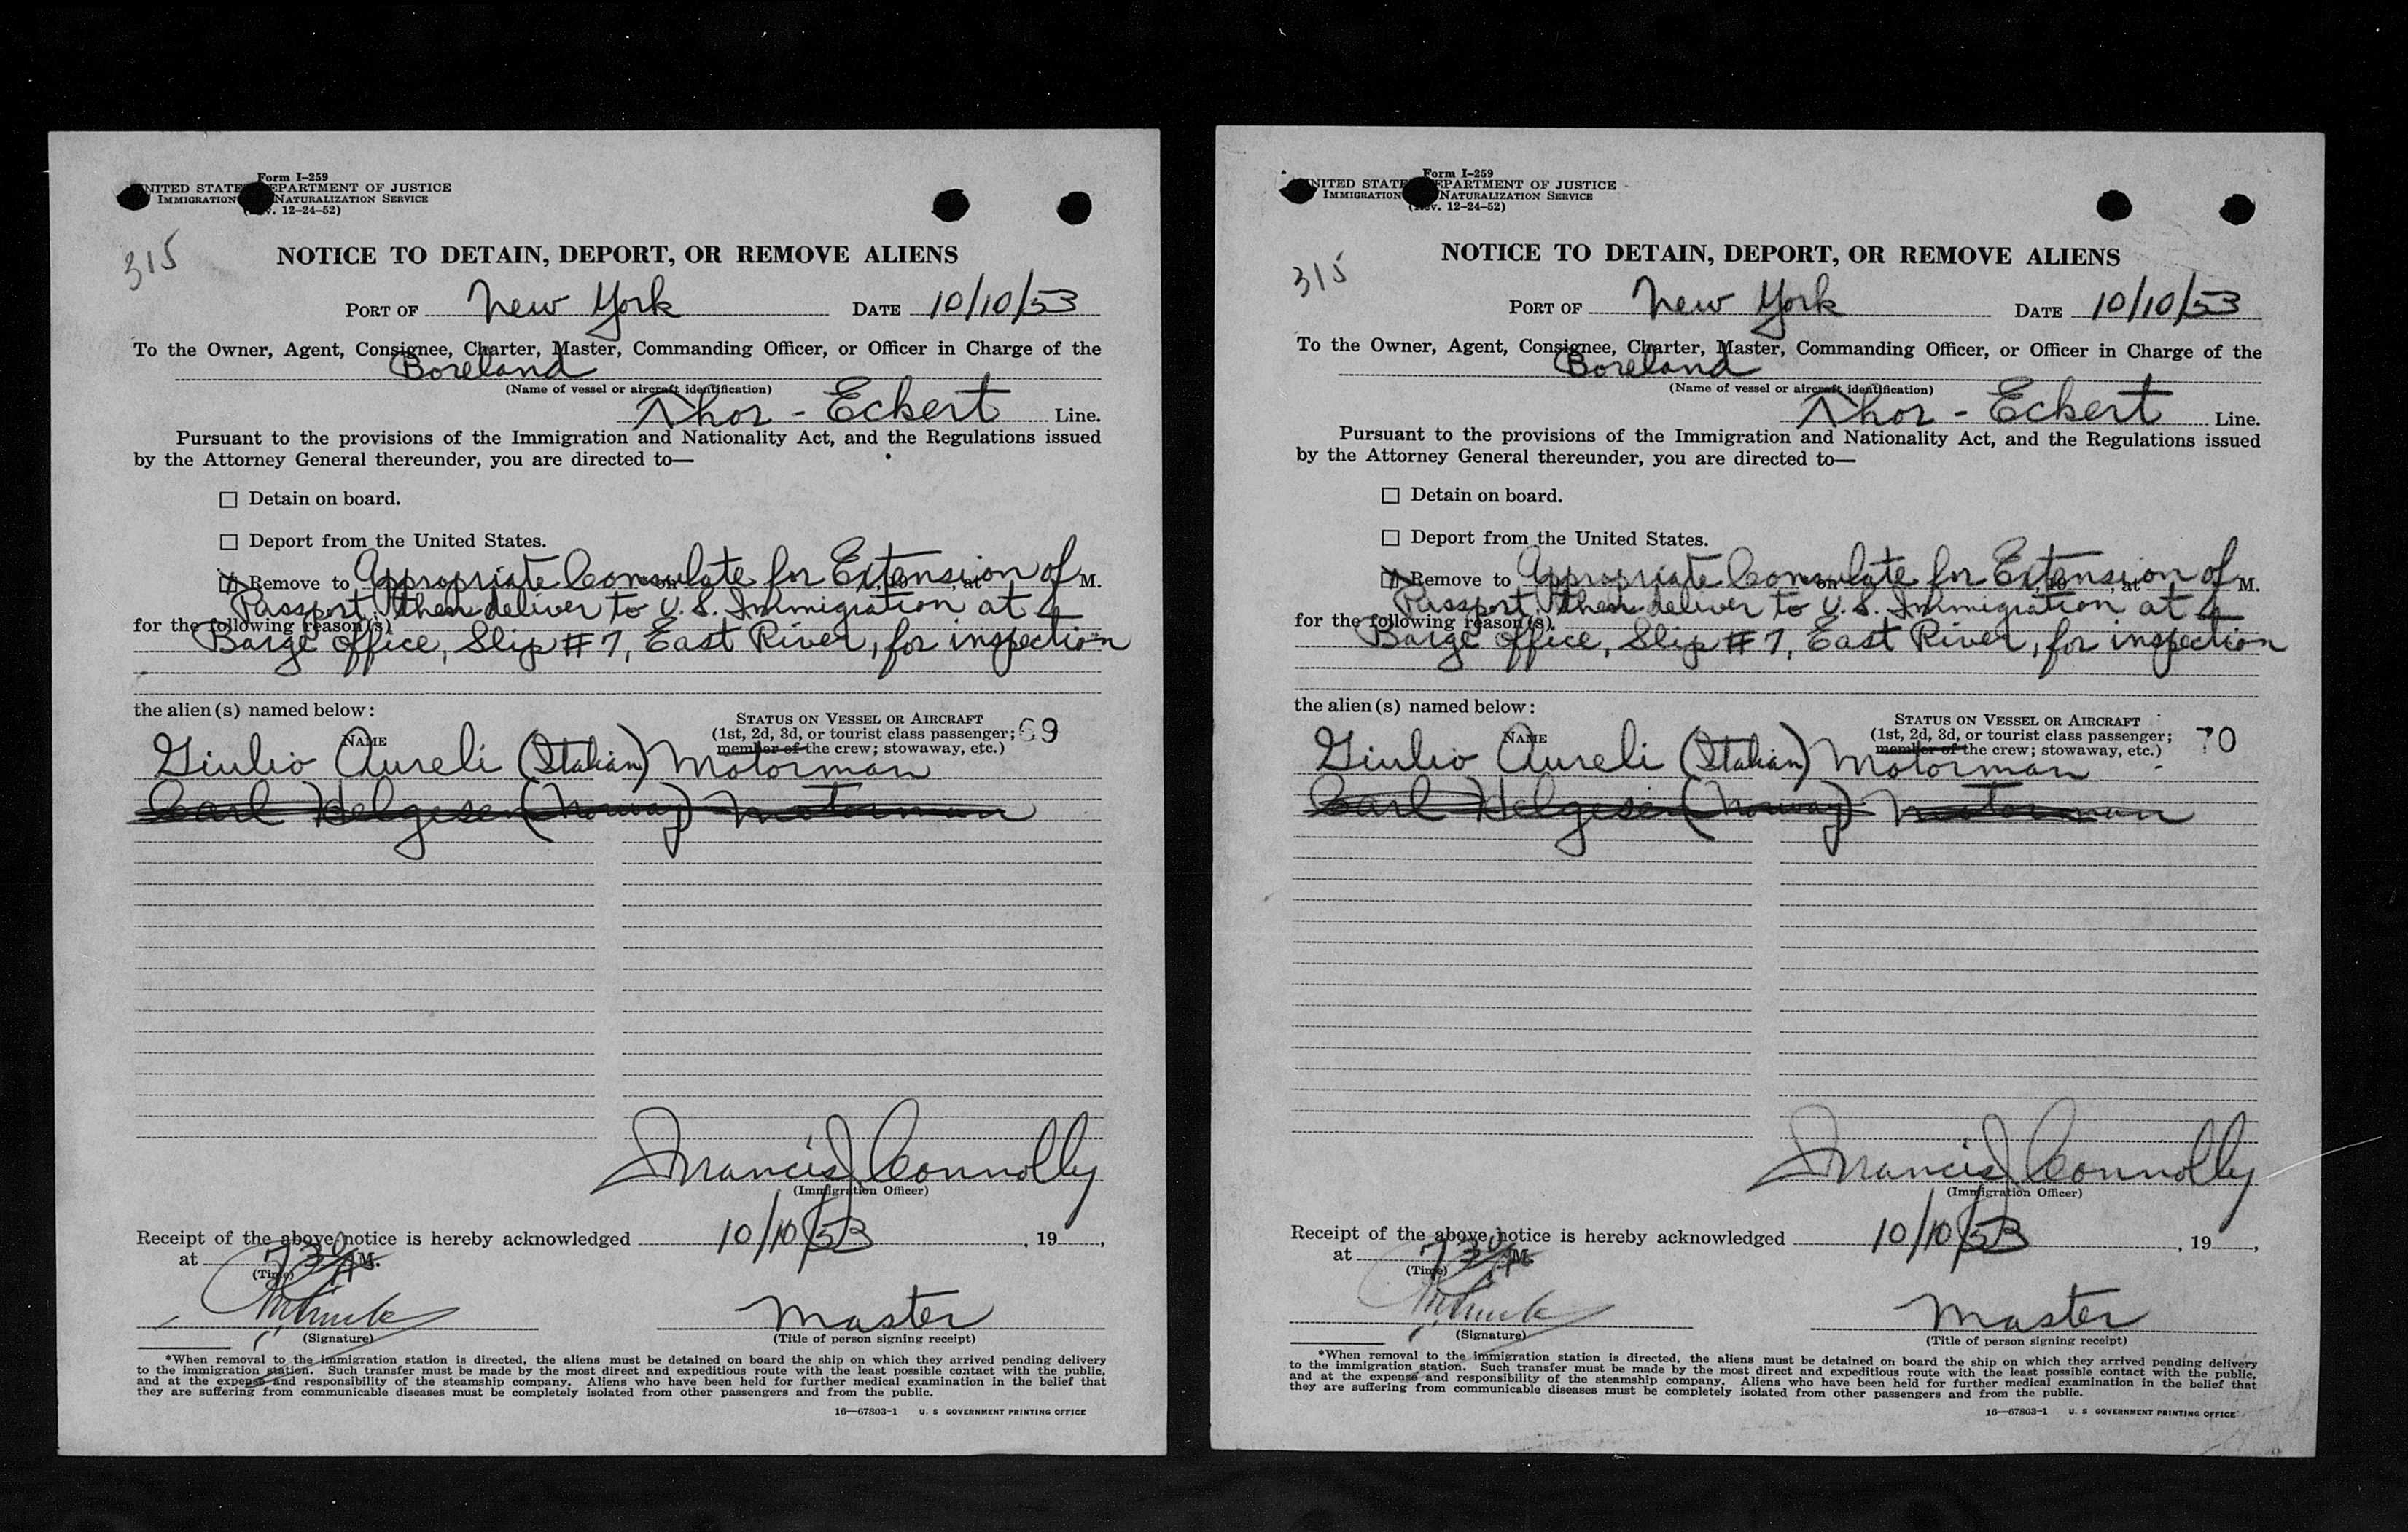 Form I-259
UNITED STATES DEPARTMENT OF JUSTICE
IMMIGRATION NATURALIZATION SERVICE
(Rev. 12-24-52)
315
NOTICE TO DETAIN, DEPORT, OR REMOVE ALIENS
PORT OF New York DATE 10/10/53
To the Owner, Agent, Consignee, Charter, Master, Commanding Officer, or Officer in Charge of the
Boreland
(Name of vessel or aircraft identification)
Thor - Eckert Line.
Pursuant to the provisions of the Immigration and Nationality Act, and the Regulations issued
by the Attorney General thereunder, you are directed to—
☐ Detain on board.
☐ Deport from the United States.
☒ Remove to Appropriate Consulate for Extension of M.
Passport, then deliver to U.S. Immigration at
for the following reason(s)
Barge Office, Slip # 7, East River, for inspection
the alien(s) named below:
STATUS ON VESSEL OR AIRCRAFT
NAME (1st, 2d, 3d, or tourist class passenger; 69
member of the crew; stowaway, etc.)
Giulio Aureli (Italian) Motorman
Carl Helgesen (Norway) Motorman
Francis J Connolly
(Immigration Officer)
Receipt of the above notice is hereby acknowledged 10/10/53, 19
at 730 A M.
(Time)
Master
(Signature) (Title of person signing receipt)
*When removal to the immigration station is directed, the aliens must be detained on board the ship on which they arrived pending delivery
to the immigration station. Such transfer must be made by the most direct and expeditious route with the least possible contact with the public,
and at the expense and responsibility of the steamship company. Aliens who have been held for further medical examination in the belief that
they are suffering from communicable diseases must be completely isolated from other passengers and from the public.
16—67803-1 U. S GOVERNMENT PRINTING OFFICE
Form I-259
UNITED STATES DEPARTMENT OF JUSTICE
IMMIGRATION NATURALIZATION SERVICE
(Rev. 12-24-52)
315
NOTICE TO DETAIN, DEPORT, OR REMOVE ALIENS
PORT OF New York DATE 10/10/53
To the Owner, Agent, Consignee, Charter, Master, Commanding Officer, or Officer in Charge of the
Boreland
(Name of vessel or aircraft identification)
Thor - Eckert Line.
Pursuant to the provisions of the Immigration and Nationality Act, and the Regulations issued
by the Attorney General thereunder, you are directed to—
☐ Detain on board.
☐ Deport from the United States.
☒ Remove to Appropriate Consulate for Extension of M.
Passport, then deliver to U.S. Immigration at
for the following reason(s)
Barge Office, Slip # 7, East River, for inspection
the alien(s) named below:
STATUS ON VESSEL OR AIRCRAFT
NAME (1st, 2d, 3d, or tourist class passenger; 70
member of the crew; stowaway, etc.)
Giulio Aureli (Italian) Motorman
Carl Helgesen (Norway) Motorman
Francis J Connolly
(Immigration Officer)
Receipt of the above notice is hereby acknowledged 10/10/53, 19
at 730 A M.
(Time)
Master
(Signature) (Title of person signing receipt)
*When removal to the immigration station is directed, the aliens must be detained on board the ship on which they arrived pending delivery
to the immigration station. Such transfer must be made by the most direct and expeditious route with the least possible contact with the public,
and at the expense and responsibility of the steamship company. Aliens who have been held for further medical examination in the belief that
they are suffering from communicable diseases must be completely isolated from other passengers and from the public.
16—67803-1 U. S GOVERNMENT PRINTING OFFICE